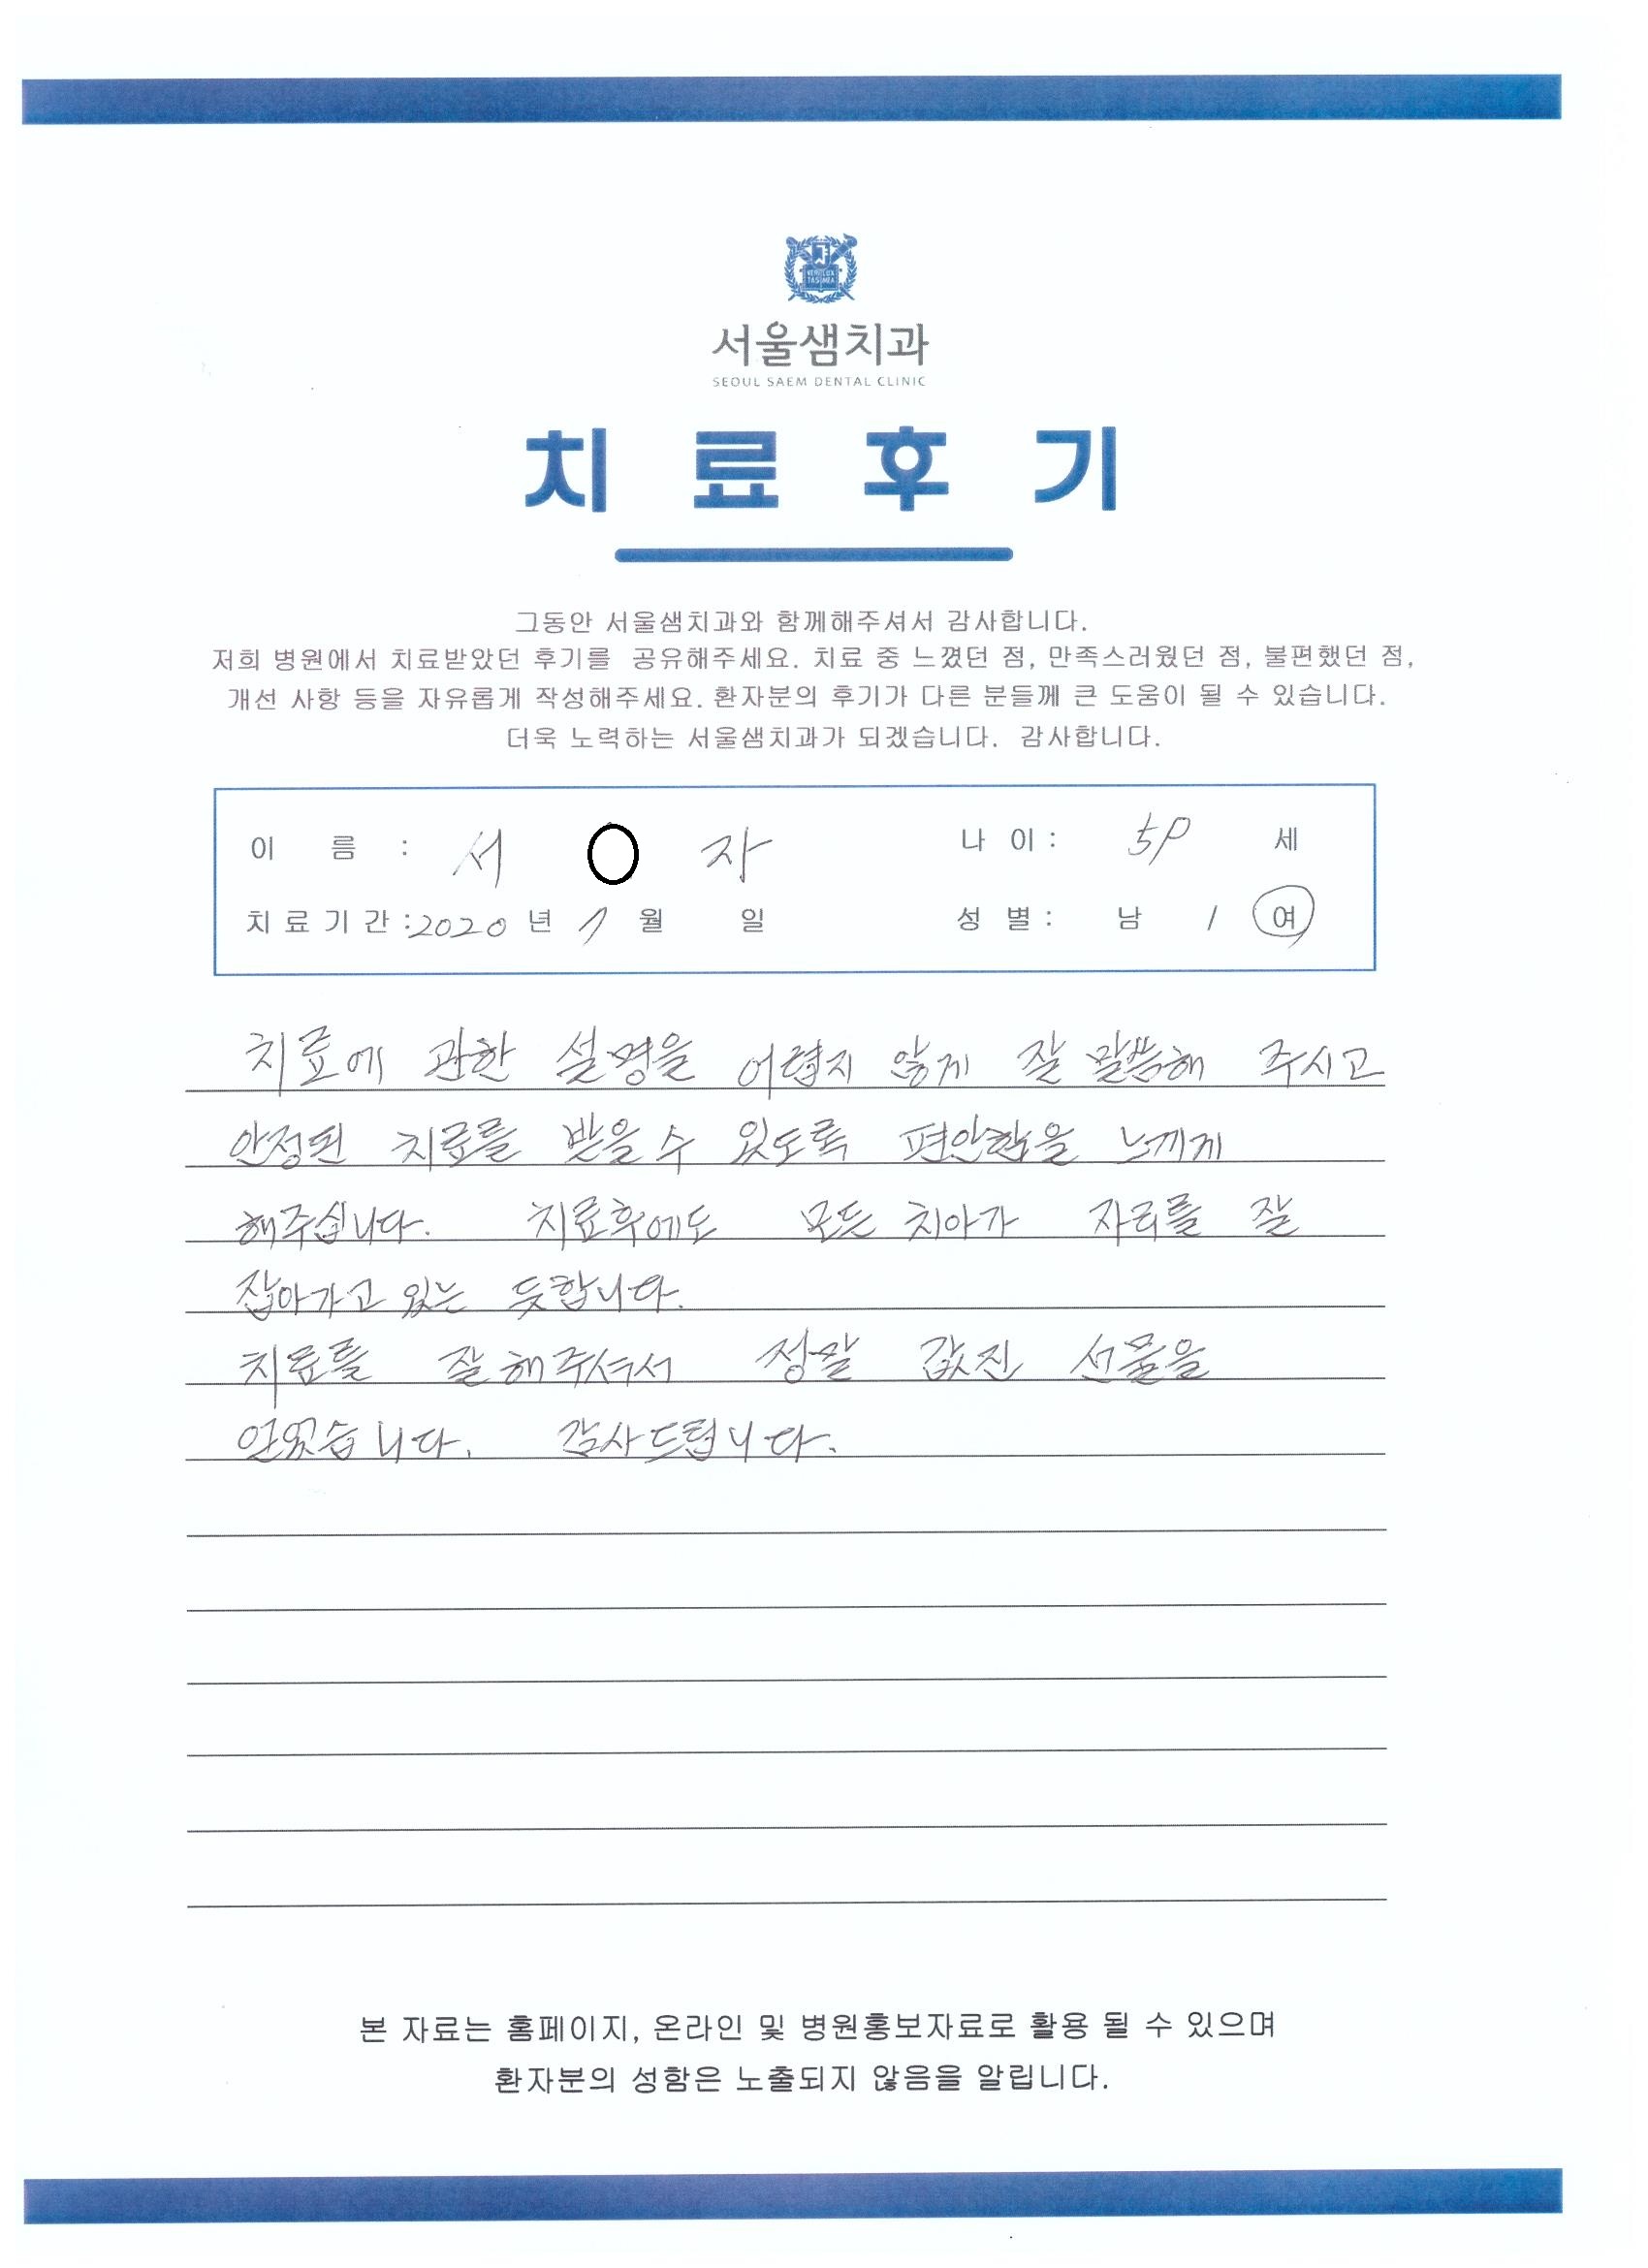 서울샘치과
SEOUL SAEM DENTAL CLINIC
치료후기
그동안 서울샘치과와 함께해주셔서 감사합니다.
저희 병원에서 치료받았던 후기를 공유해주세요. 치료 중 느꼈던 점, 만족스러웠던 점, 불편했던 점,
개선 사항 등을 자유롭게 작성해주세요. 환자분의 후기가 다른 분들께 큰 도움이 될 수 있습니다.
더욱 노력하는 서울샘치과가 되겠습니다. 감사합니다.
이 름 : 서 O 자 나 이 : 59 세
치료기간 : 2020 년 1 월 일 성 별 : 남 / 여
치료에 관한 설명을 어렵지 않게 잘 말씀해 주시고
안정된 치료를 받을 수 있도록 편안함을 느끼게
해주십니다. 치료후에도 모든 치아가 자리를 잘
잡아가고 있는 듯합니다.
치료를 잘 해주셔서 정말 값진 선물을
안았습니다. 감사드립니다.
본 자료는 홈페이지, 온라인 및 병원홍보자료로 활용 될 수 있으며
환자분의 성함은 노출되지 않음을 알립니다.